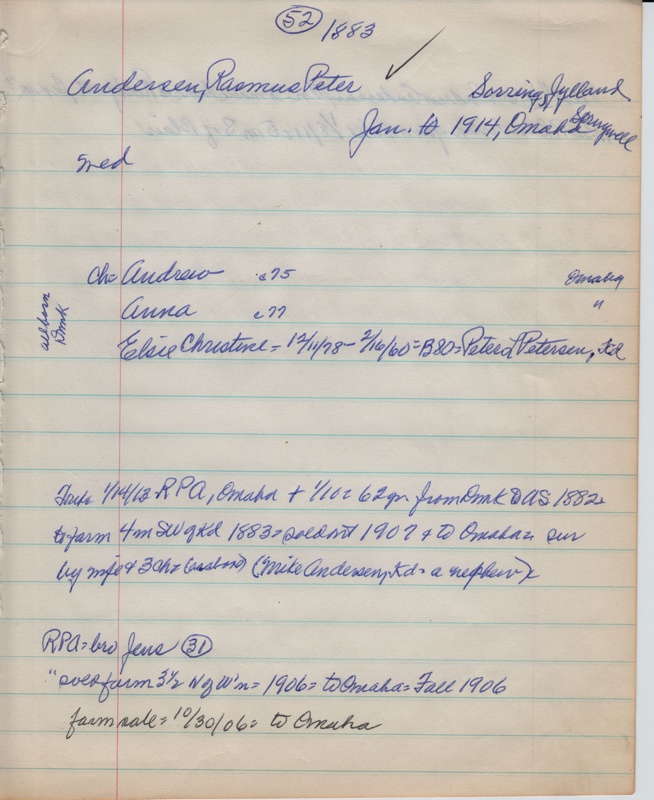 52 1883
Andersen, Rasmus Peter ✓ Sorring, Jylland
Jan. 10 1914, Omaha Springwell
md
ch = Andrew c75 Omaha
all born Dmk
Anna c77 "
Elsie Christine = 12/11/78 - 2/16/60 = B80 = Peter J Petersen, Kd
1/14/13 = RPA, Omaha + 1/10 = 62 yr. from Dmk to US 1882 =
to farm 4 m SW of Kd 1883 = sold out 1907 + to Omaha = sur
by wife + 3 ch = (Mike Andersen, Kd = a nephew)
RPA = bro Jens 31
" sold farm 3 1/2 N of W'n = 1906 = to Omaha = Fall 1906
farm sale = 10/30/06 = to Omaha